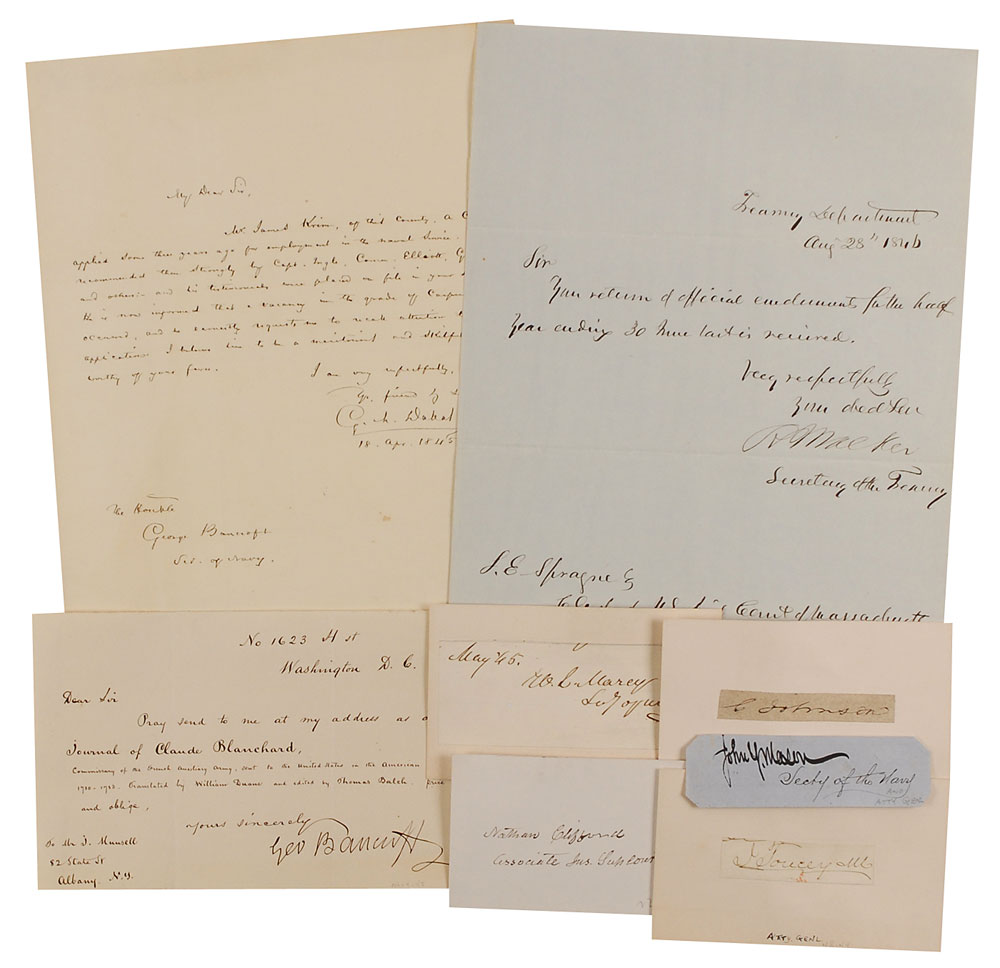 My Dear Sir,
Mr. James Krim, of this County, a C
applied some three years ago for employment in the naval Service.
recommended then strongly by Capt. Ingle, Comm. Elliott, G
and others and his testimonials were placed on file in your
He is now informed that a vacancy in the grade of
occurred, and so earnestly requests me to recall attention
application. I believe him to be a meritorious and skilful
worthy of your favor.
I am very respectfully,
Yr. friend &
18. Apr. 1845
The Honble
George Bancroft
Sec. of Navy.
Treasury Department
Aug 28th 1846
Sir
Your return of official emoluments for the half
Year ending 30 June last is received.
Very respectfully
Your obed Ser
R J Walker
Secretary of the Treasury
S. E. Sprague
Clerk of U S Court of Massachusetts
No 1623 H St
Washington D. C.
Dear Sir
Pray send to me at my address as
Journal of Claude Blanchard,
Commissary of the French Auxiliary Army sent to the United States in the American
1780-1783. Translated by William Duane and edited by Thomas Balch, price
and oblige,
Yours sincerely
Geo Bancroft
To Mr J. Munsell
82 State St
Albany. N.Y.
May 45.
W. L. Marcy
C Johnson
John Y Mason
Secty of the Navy
AND
ATTY GENL
Nathan Clifford
Associate Jus. Sup Cour
I Toucey
ATTY. GENL